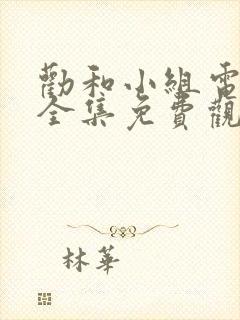 勸和小組電
全集免費觀
林華